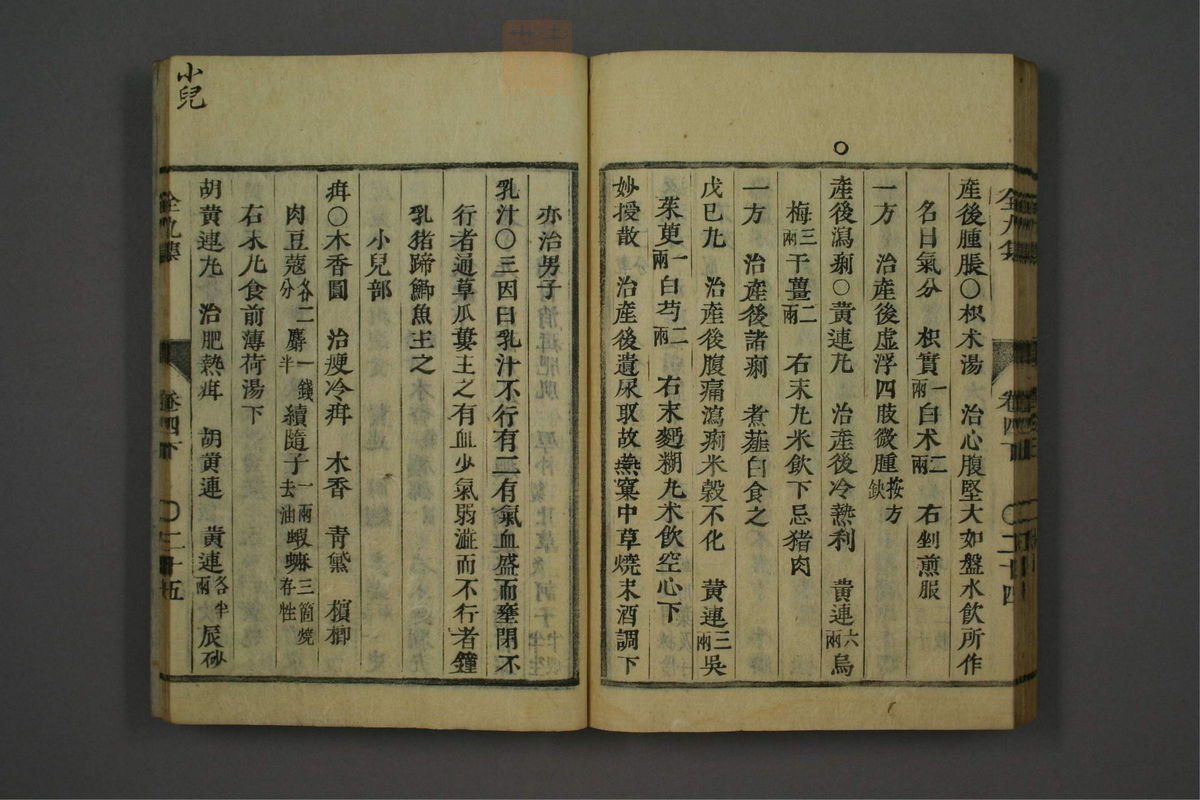 産後腫脹○枳朮湯 治心腹堅大如盤水飲所作
名曰氣分 枳實一兩白朮二兩 右剉煎服
一方 治産後虛浮四肢微腫按方缺
産後瀉痢○黄連丸 治産後冷熱利 黄連六兩烏
梅三兩干薑二兩 右末丸米飲下忌猪肉
一方 治産後諸痢 煮薤白食之
戊巳丸 治産後腹痛瀉痢米穀不化 黄連三兩吳
茱萸一兩白芍二兩 右末麪糊丸米飲空心下
妙授散 治産後遺尿取故燕窠中草燒末酒調下
全九集 卷四下 ○二十四
小兒
亦治男子
乳汁○三因曰乳汁不行有二有氣血盛而壅閉不
行者通草瓜蔞主之有血少氣弱澁而不行者鐘
乳猪蹄鯽魚主之
小兒部
疳○木香圓 治瘦冷疳 木香 青黛 檳榔
肉豆蔻各二分麝一錢半續隨子一兩去油蝦蟆三箇燒存性
右末丸食前薄荷湯下
胡黄連丸 治肥熱疳 胡黄連 黄連各半兩辰砂
全九集 卷四下 ○二十五